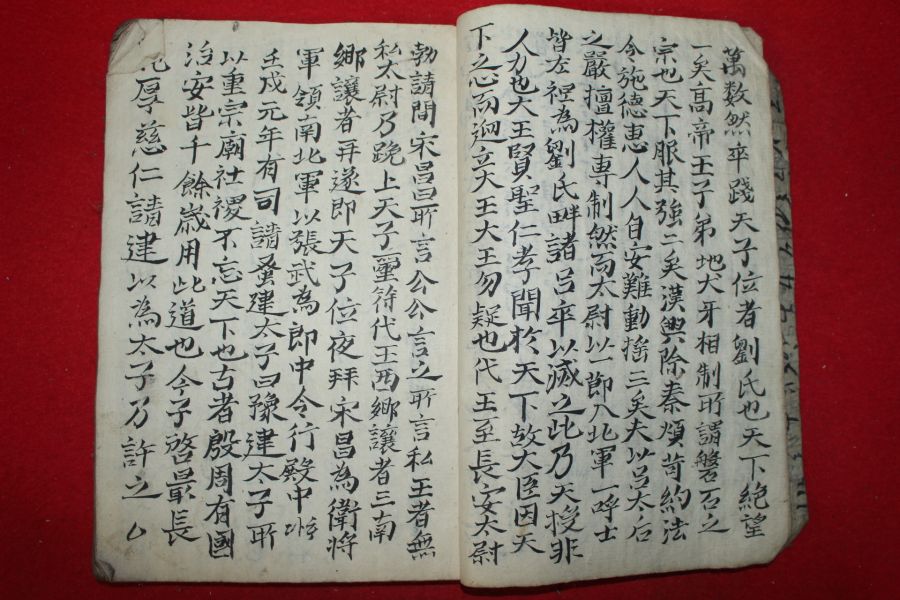 萬数然卒踐天子位者劉氏也天下絶望
一矣高帝王子弟地犬牙相制所謂磐石之
宗也天下服其強二矣漢興除秦煩苛約法
令施德惠人人自安難動搖三矣夫以呂太后
之嚴擅權專制然而太尉以一節入北軍一呼士
皆左袒為劉氏畔諸呂卒以滅之此乃天授非
人力也大王賢聖仁孝聞於天下故大臣因天
下之心而迎立大王大王勿疑也代王至長安太尉
勃請問宋昌曰所言公公言之所言私王者無
私太尉乃跪上天子璽符代王西鄉讓者三南
鄉讓者再遂即天子位夜拜宋昌為衛將
軍領南北軍以張武為郎中令行殿中
壬戌元年有司請蚤建太子曰豫建太子所
以重宗廟社稷不忘天下也古者殷周有國
治安皆千餘歲用此道也今子啓最長
厚慈仁請建以為太子乃許之